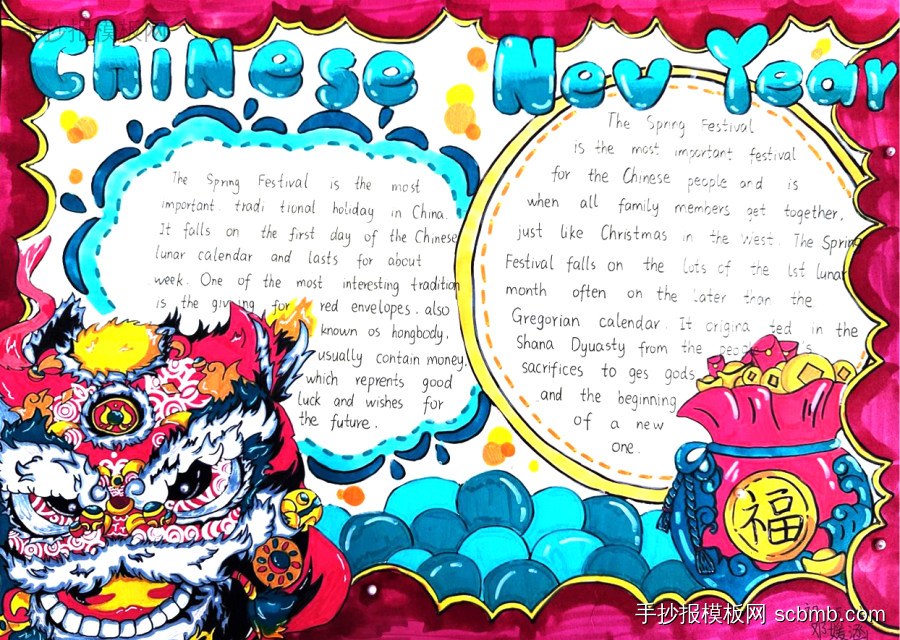 手抄报模板网
Chinese New Year
The Spring Festival is the most
important. tradi tional holiday in China.
It falls on the first day of the Chinese
lunar calendar and lasts for about
week. One of the most interesting tradition
is the giving for red envelopes. also
known os hongbody.
usually contain money.
which reprents good
luck and wishes for
the future.
The Spring Festival
is the most important festival
for the Chinese people and is
when all family members get together.
just like Christmas in the West. The Spring
Festival falls on the lots of the lst lunar
month often on the later than the
Gregorian calendar. It origina ted in the
Shana Dyuasty from the people's
sacrifices to ges gods
and the beginning
of a new
one.
福
手抄报模板网 scbmb.com